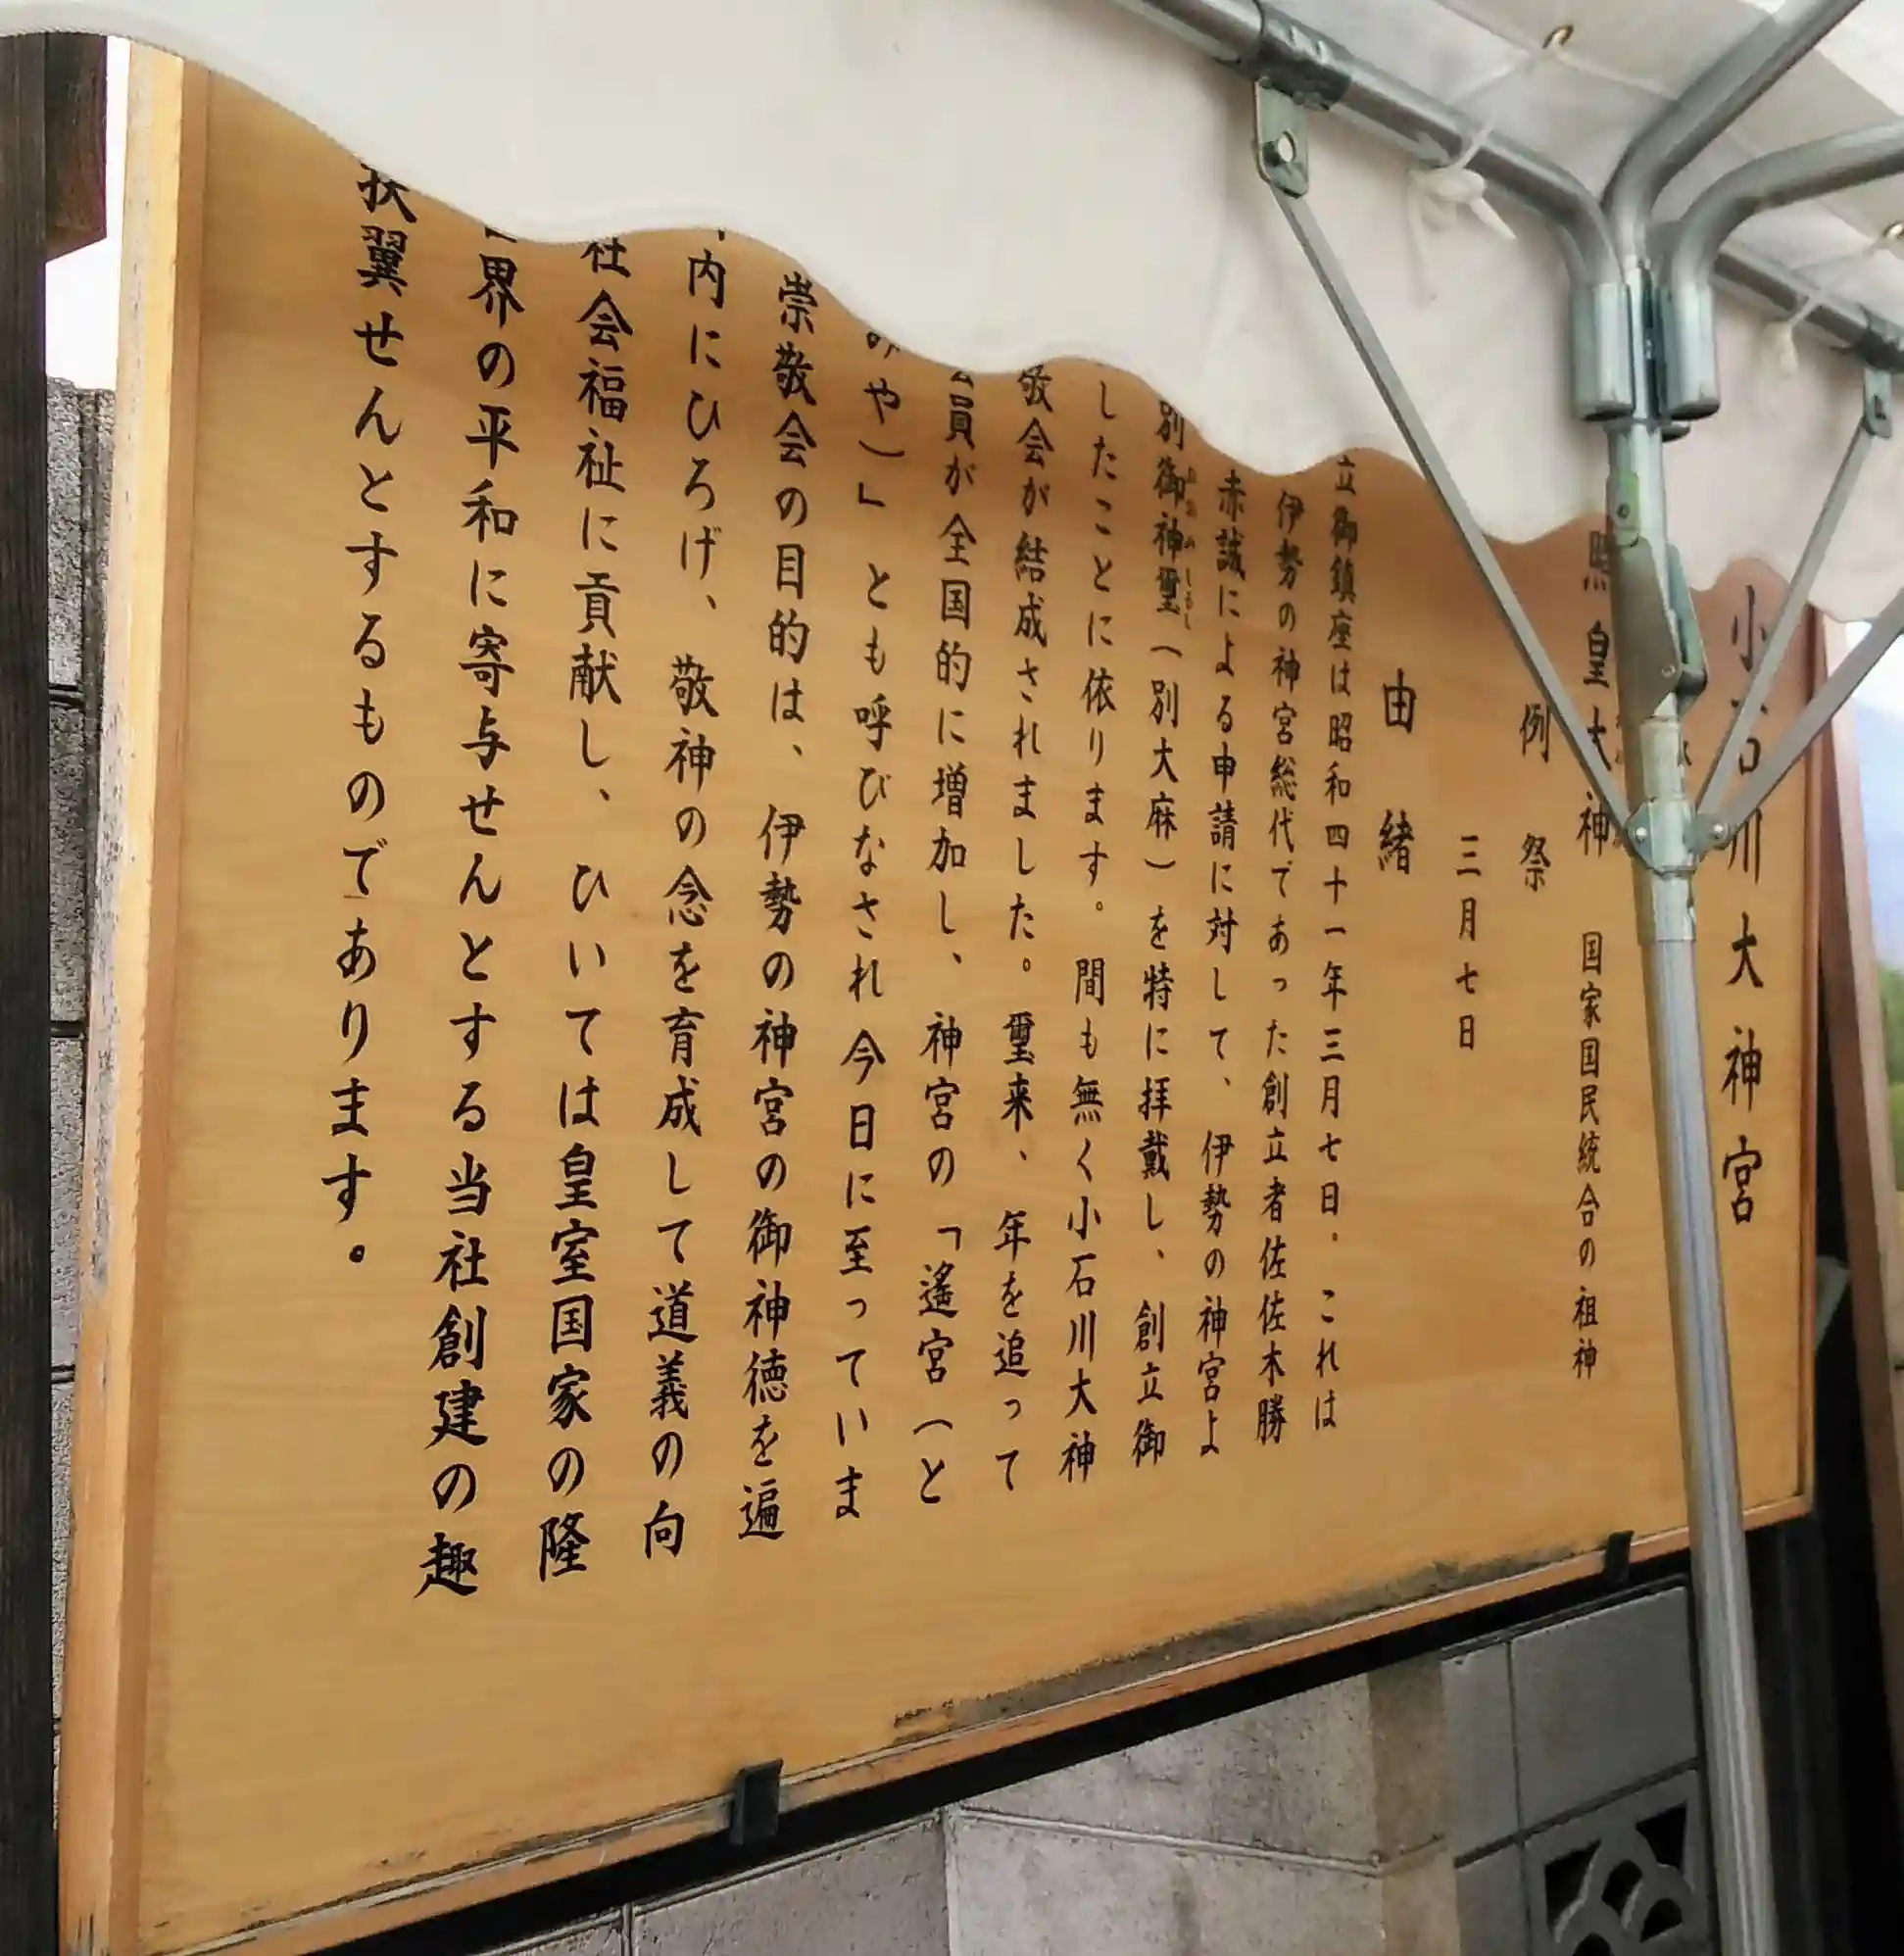 小石川大神宮
照皇大神 国家国民統合の祖神
例祭
三月七日
由緒
立御鎮座は昭和四十一年三月七日。これは
伊勢の神宮総代であった創立者佐佐木勝
赤誠による申請に対して、伊勢の神宮よ
別御神璽（別大麻）を特に拝戴し、創立御
したことに依ります。間も無く小石川大神
敬会が結成されました。璽来、年を追って
員が全国的に増加し、神宮の「遙宮（と
みや）」とも呼びなされ今日に至っていま
崇敬会の目的は、伊勢の神宮の御神徳を遍
内にひろげ、敬神の念を育成して道義の向
社会福祉に貢献し、ひいては皇室国家の隆
世界の平和に寄与せんとする当社創建の趣
扶翼せんとするものであります。